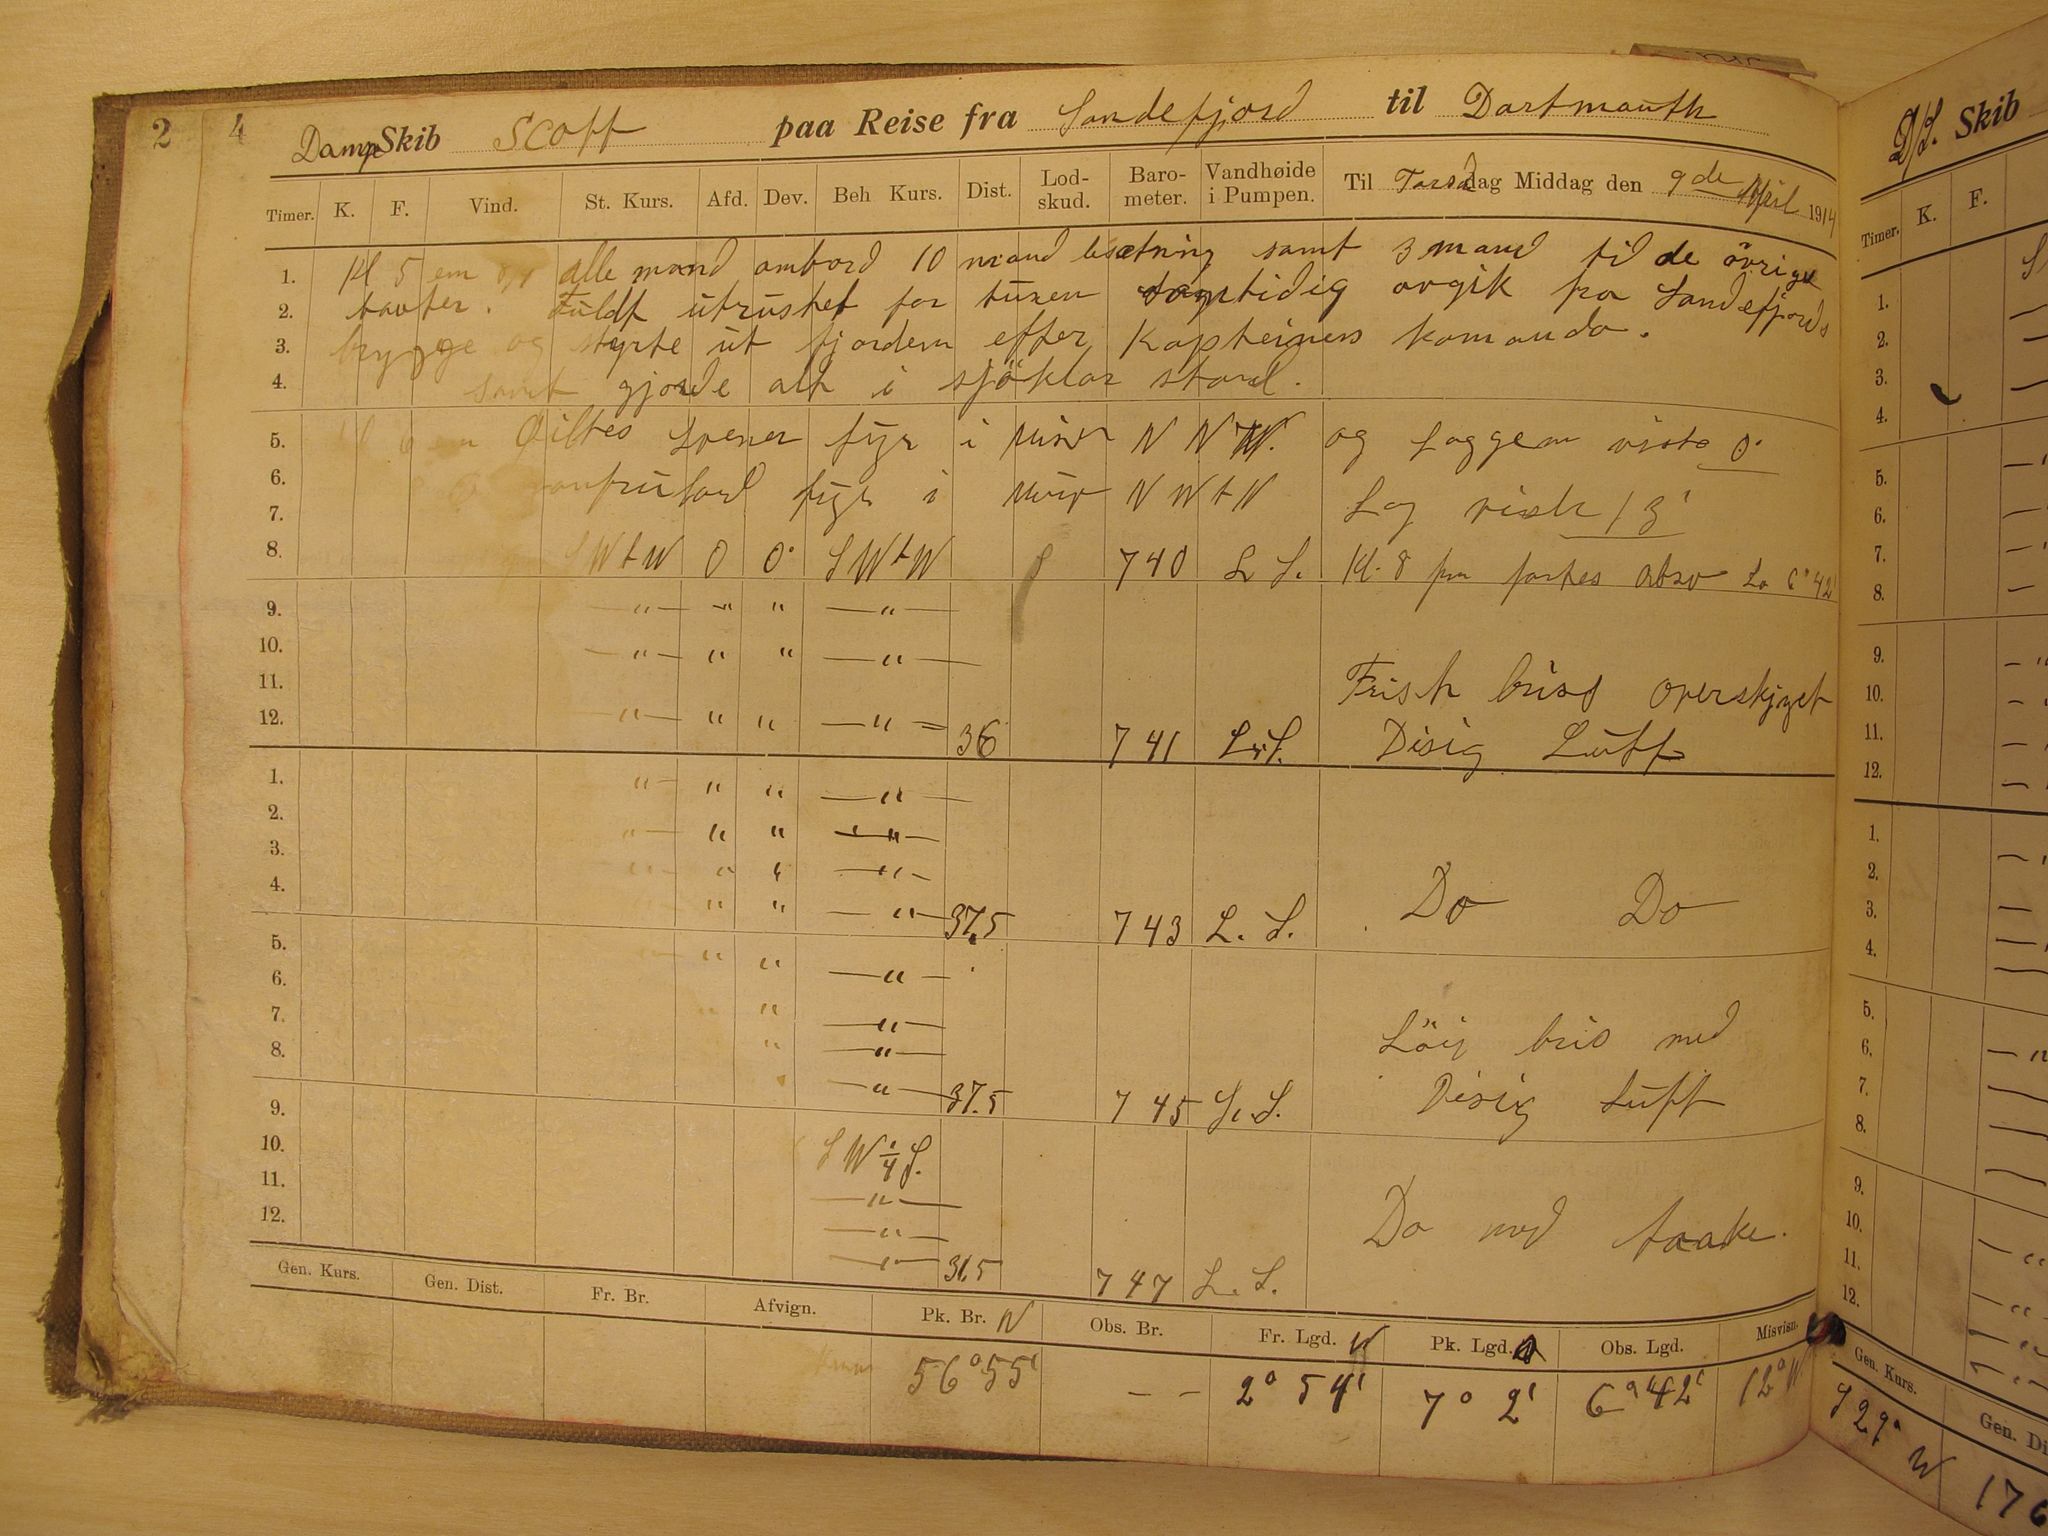 2 4
Damp Skib Scott paa Reise fra Sandefjord til Dartmouth
Timer. K. F. Vind. St. Kurs. Afd. Dev. Beh Kurs. Dist. Lod-skud. Baro-meter. Vandhøide i Pumpen. Til Torsdag Middag den 9de April 1914
1. Kl 5 em 8/4 alle mand ombord 10 mand besætning samt 3 mand til de övrige
2. Fuldt utrustet for turen samtidig avgik fra Sandefjords
3. brygge og styrte ut fjorden efter Kapteinens komando.
4. samt gjorde alt i sjöklar stand.
5. 6 em Peiltes Svener fyr i misv N N W. og Loggen viste 0
6. fyr i misv N W t N Log viste 13'
7.
8. S W t W 0 0° S W t W 740 L L. Kl. 8 fm toges obsv Lo 6° 42'
9. —"— " " —"—
10. —"— " " —"—
11. Frisk bris overskyet
12. —"— " " —"— 36 741 L. L. Disig Luft
1. "— " " —"—
2. "— " " —"—
3. " " " —"—
4. " " " —"— 37.5 743 L. L. Do Do
5. " " " —"—
6. " " —"—
7. " —"— Löij bris med
8. —"— 37.5 745 L. L. Disig Luft
9.
10. S W 1/4 S.
11. —"—
12. —"— Do med taake.
—"— 36.5 747 L. L.
Gen. Kurs. Gen. Dist. Fr. Br. Afvign. Pk. Br. N Obs. Br. Fr. Lgd. W Pk. Lgd. Obs. Lgd. Misvisn.
56°55' - - 2° 54' 7° 2' 6° 42' 12° W
D/S. Skib
Timer. K. F.
1.
2.
3.
4.
5.
6.
7.
8.
9.
10.
11.
12.
1.
2.
3.
4.
5.
6.
7.
8.
9.
10.
11.
12.
Gen. Kurs. Gen. Di
S 29° W 176